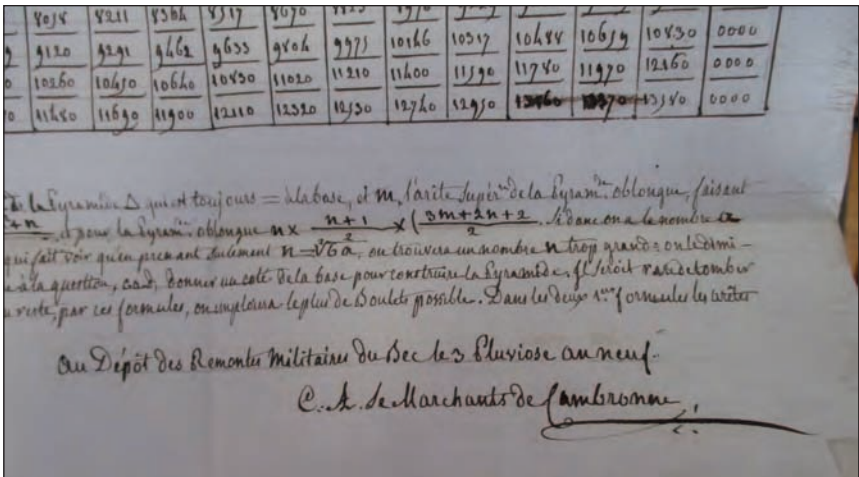 8058 8211 8364 8517 8670 8823
9120 9291 9462 9633 9804 9975 10146 10317 10488 10659 10830 0000
10260 10450 10640 10830 11020 11210 11400 11590 11780 11970 12160 0000
11480 11690 11900 12110 12320 12530 12740 12950 13160 13370 13580 0000
de la Pyramide Δ qui est toujours = à la base, et m, l'arite supér.re de la Pyram.de oblongue, faisant
+n et pour la Pyram.de oblongue n x n+1/2 x (3m+2n+2/2. Si donc on a le nombre a
qui fait voir qu'en prenant seulement n=∛6a, on trouvera un nombre n trop grand: on le dimi-
e à la question, c.a.d, donner un coté de la base pour construire la Pyramide. Il seroit rare de tomber
u reste, par ces formules, on emploira le plus de Boulets possible. Dans les deux 1.eres formules les arites
au Dépôt des Remontes Militaires du Bec le 3 Pluviose an neuf.
C. A. de Marchants de Cambronne,